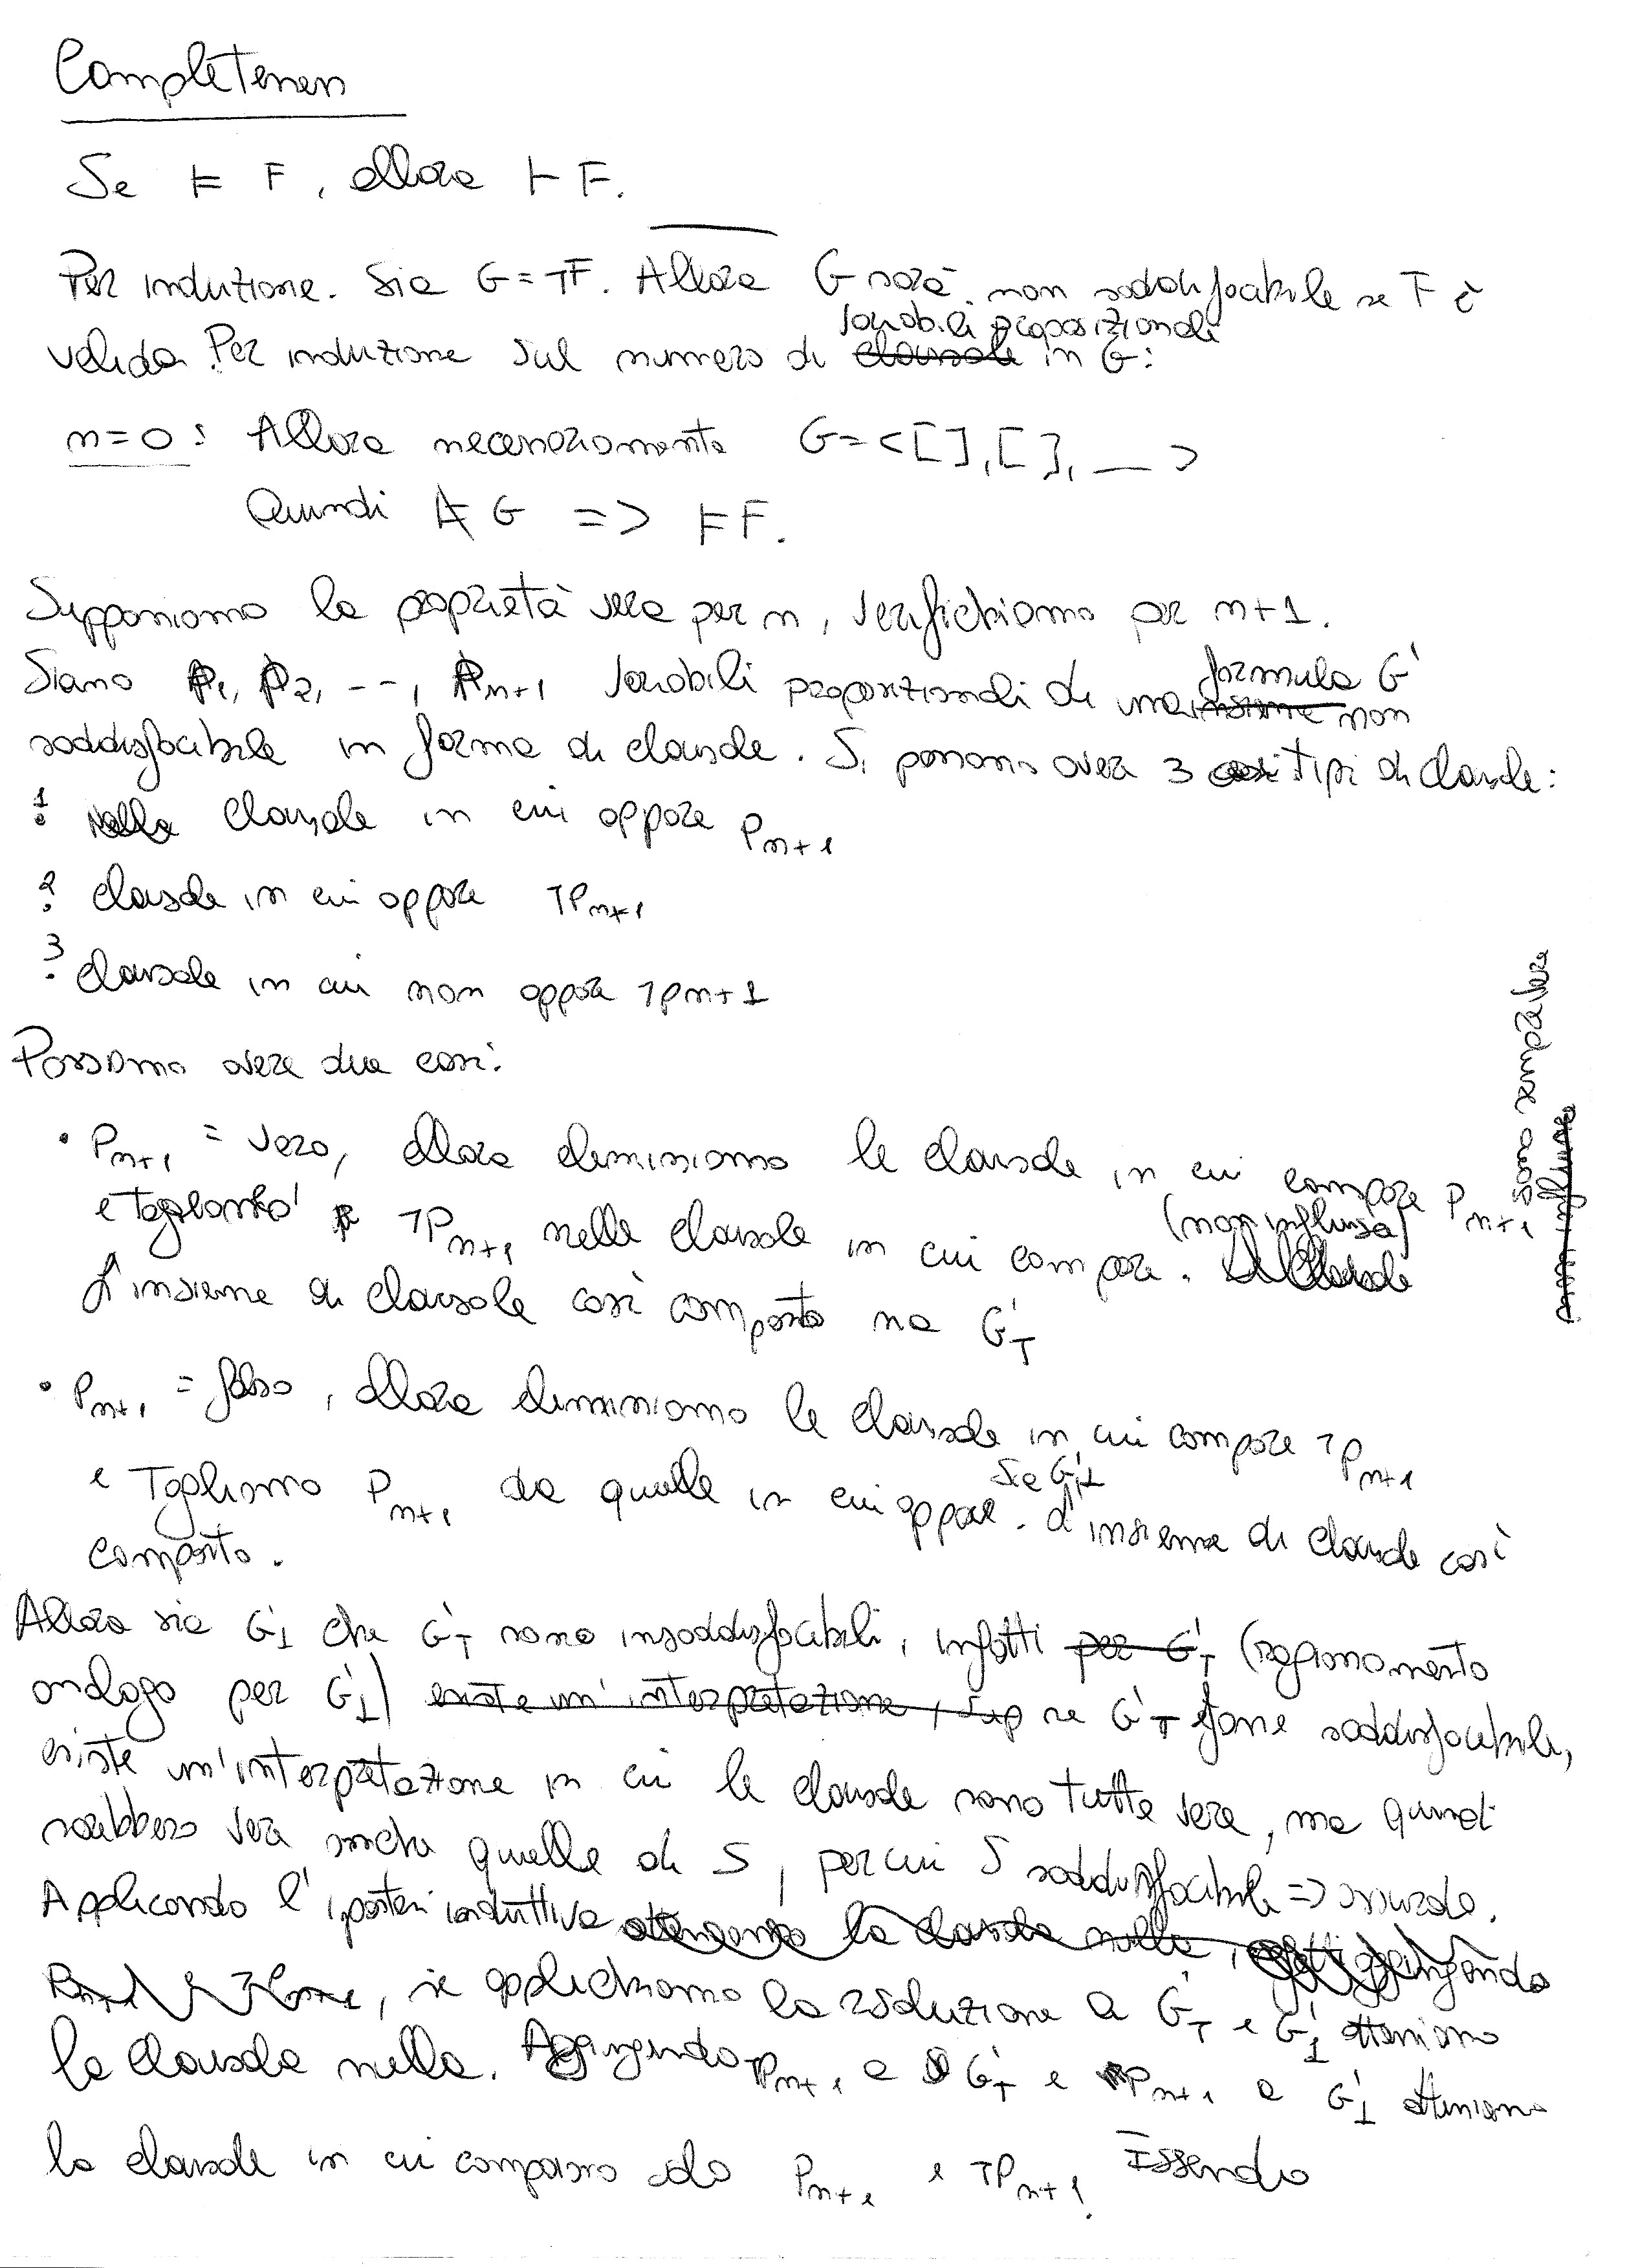 Completezza
Se ⊨ F, allora ⊢ F.
Per induzione. Sia G = ¬F. Allora G sarà non soddisfacibile se F è
variabili proposizionali
valida. Per induzione sul numero di clausole in G:
n=0: Allora necessariamente G=<[],[],_>
Quindi ⊭ G => ⊨F.
Supponiamo la proprietà vera per n, verifichiamo per n+1.
formula G'
Siano P1, P2, --, Pn+1 variabili proposizionali di una insieme non
soddisfacibile in forma di clausole. Si possono avere 3 casi tipi di clausole:
1. Nelle clausole in cui appare Pn+1
2. clausole in cui appare ¬Pn+1
3. clausole in cui non appare ¬pn+1
Possiamo avere due casi:
• Pn+1 = vero, allora eliminiamo le clausole in cui compare Pn+1
sono sempre vere
non influisce
e togliamo ¬Pn+1 nelle clausole in cui compare. (non influisce)
L'insieme di clausole così composto sia G'⊤
• Pn+1 = falso, allora eliminiamo le clausole in cui compare ¬Pn+1
e togliamo Pn+1 da quelle in cui appare. Sia G'⊥ l'insieme di clausole così
composto.
Allora sia G'⊥ che G'⊤ sono insoddisfacibili, infatti per G'⊤ (ragionamento
analogo per G'⊥) existe un'interpretazione, sup se G'⊤ fosse soddisfacibile,
existe un'interpretazione in cui le clausole sono tutte vere, ma quindi
sarebbero vere anche quelle di S, per cui S soddisfacibile => assurdo.
Applicando l'ipotesi induttiva otteniamo la clausola nulla, aggiungendo
, se applichiamo la risoluzione a G'⊤ e G'⊥ otteniamo
la clausola nulla. Aggiungendo ¬Pn+1 a G'⊤ e Pn+1 a G'⊥ otteniamo
la clausole in cui compaiono solo Pn+1 e ¬Pn+1. Essendo